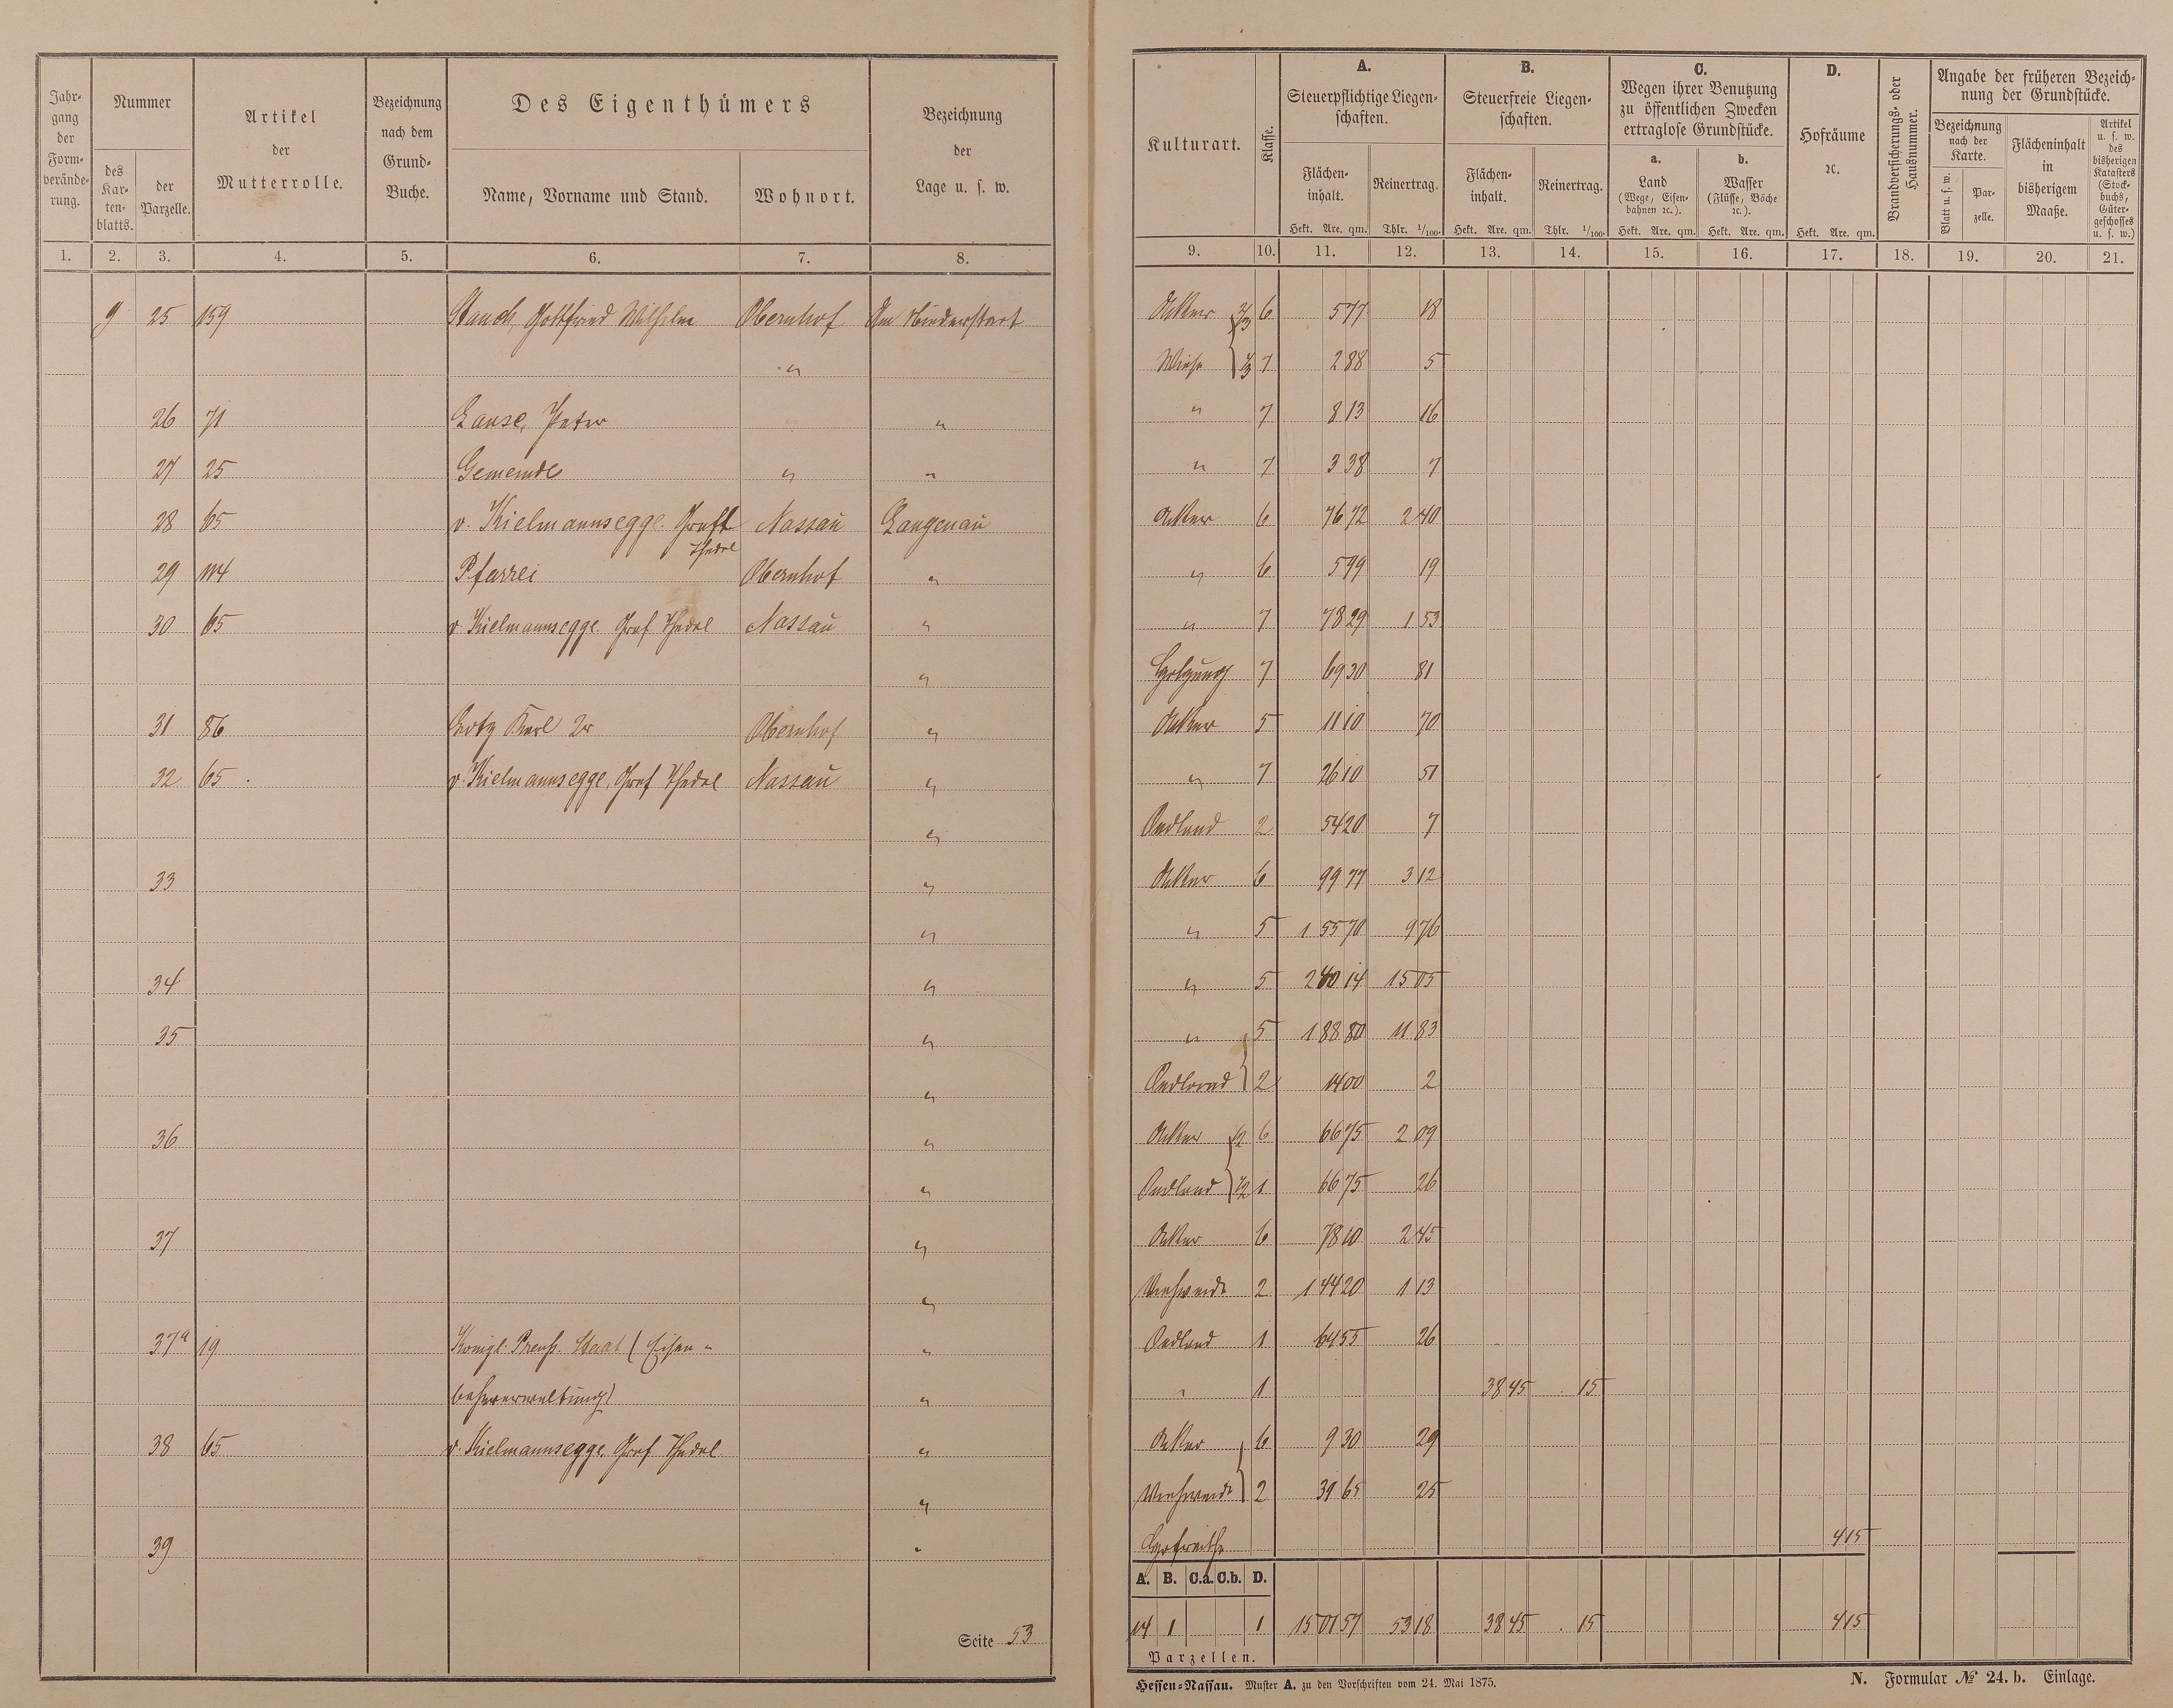 Jahr-gang der Form-verände-rung.
Nummer
des Kar-ten-blatts.
der Parzelle.
Artikel der Mutterrolle.
Bezeichnung nach dem Grund-Buche.
Des Eigenthümers
Name, Vorname und Stand.
Wohnort.
Bezeichnung der Lage u. s. w.
1. 2. 3. 4. 5. 6. 7. 8.
9 25 159 Stauch, Gottfried Wilhelm Obernhof Am
"
26 71 Lause, Peter "
27 25 Gemeinde " "
28 65 v. Kielmannsegge. Graft Nassau Langenau
Thedel
29 114 Pfarrei Obernhof "
30 65 v. Kielmannsegge. Graf Thedel Nassau "
"
31 86 Lotz Karl 2r Obernhof "
32 65 v. Kielmannsegge, Graf Thedel Nassau "
"
33 "
"
34 "
35 "
"
36 "
"
37 "
"
37a 19 Königl. Preuß. Staat (Eisen- "
bahnverwaltung) "
38 65 v. Kielmannsegge. Graf Thedel "
"
39 "
Seite 53
Kulturart.
Klasse.
A.
Steuerpflichtige Liegen-schaften.
Flächen-inhalt.
Hekt. Are. qm.
Reinertrag.
Thlr. 1/100.
B.
Steuerfreie Liegen-schaften.
Flächen-inhalt.
Hekt. Are. qm.
Reinertrag.
Thlr. 1/100.
C.
Wegen ihrer Benutzung zu öffentlichen Zwecken ertraglose Grundstücke.
a.
Land
(Wege, Eisen-bahnen ꝛc.).
Hekt. Are. qm.
b.
Wasser
(Flüsse, Bäche ꝛc.).
Hekt. Are. qm.
D.
Hofräume ꝛc.
Hekt. Are. qm.
Brandversicherungs- oder Hausnummer.
Angabe der früheren Bezeich-nung der Grundstücke.
Bezeichnung nach der Karte.
Blatt u. s. w.
Par-zelle.
Flächeninhalt in bisherigem Maaße.
Artikel u. s. w. des bisherigen Katasters (Stock-buchs, Güter-geschosses u. s. w.)
9. 10. 11. 12. 13. 14. 15. 16. 17. 18. 19. 20. 21.
Acker 2/3 6 5 77 18
Wiese 1/3 7 2 88 5
" 7 8 13 16
" 7 3 38 7
Acker 6 76 72 2 40
" 6 5 99 19
" 7 78 29 1 53
Holzung 7 69 30 81
Acker 5 11 10 70
" 7 26 10 51
Oedland 2 54 20 7
Acker 6 99 77 3 12
" 5 1 55 70 9 76
" 5 2 40 14 15 05
" 5 1 88 80 11 83
Oedland 2 14 00 2
Acker 1/2 6 66 75 2 09
Oedland 1/2 1 66 75 26
Acker 6 78 10 2 45
Viehweide 2 1 44 20 1 13
Oedland 1 64 55 26
" 1 38 45 15
Acker 6 9 30 29
Viehweide 2 39 65 25
Hofraithe 4 15
A. B. C.a. C.b. D.
14 1 1 15 01 57 53 18 38 45 15 4 15
Parzellen.
Hessen-Nassau. Muster A. zu den Vorschriften vom 24. Mai 1875.
N. Formular № 24. b. Einlage.